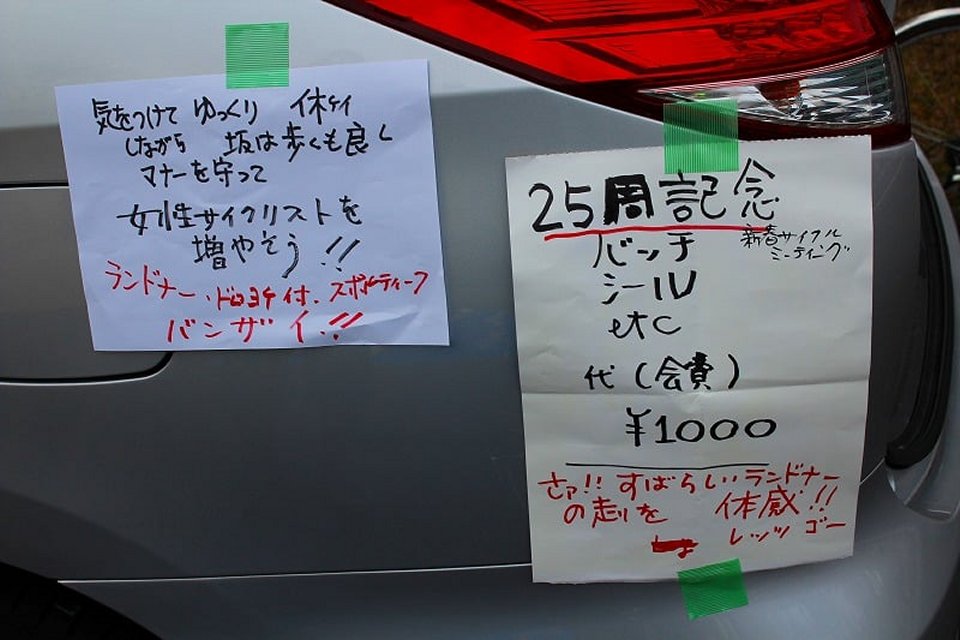 気をつけて ゆっくり 休ケイ
しながら 坂は歩くも良く
マナーを守って
女性サイクリストを
増やそう!!
ランドナー・ドロヨケ付、スポルティーフ
バンザイ!!
25周記念
新春サイクル
ミーティング
バッチ
シール
etc
代(会費)
¥1000
さァ!! すばらしいランドナー
の走りを 体感!!
レッツゴー